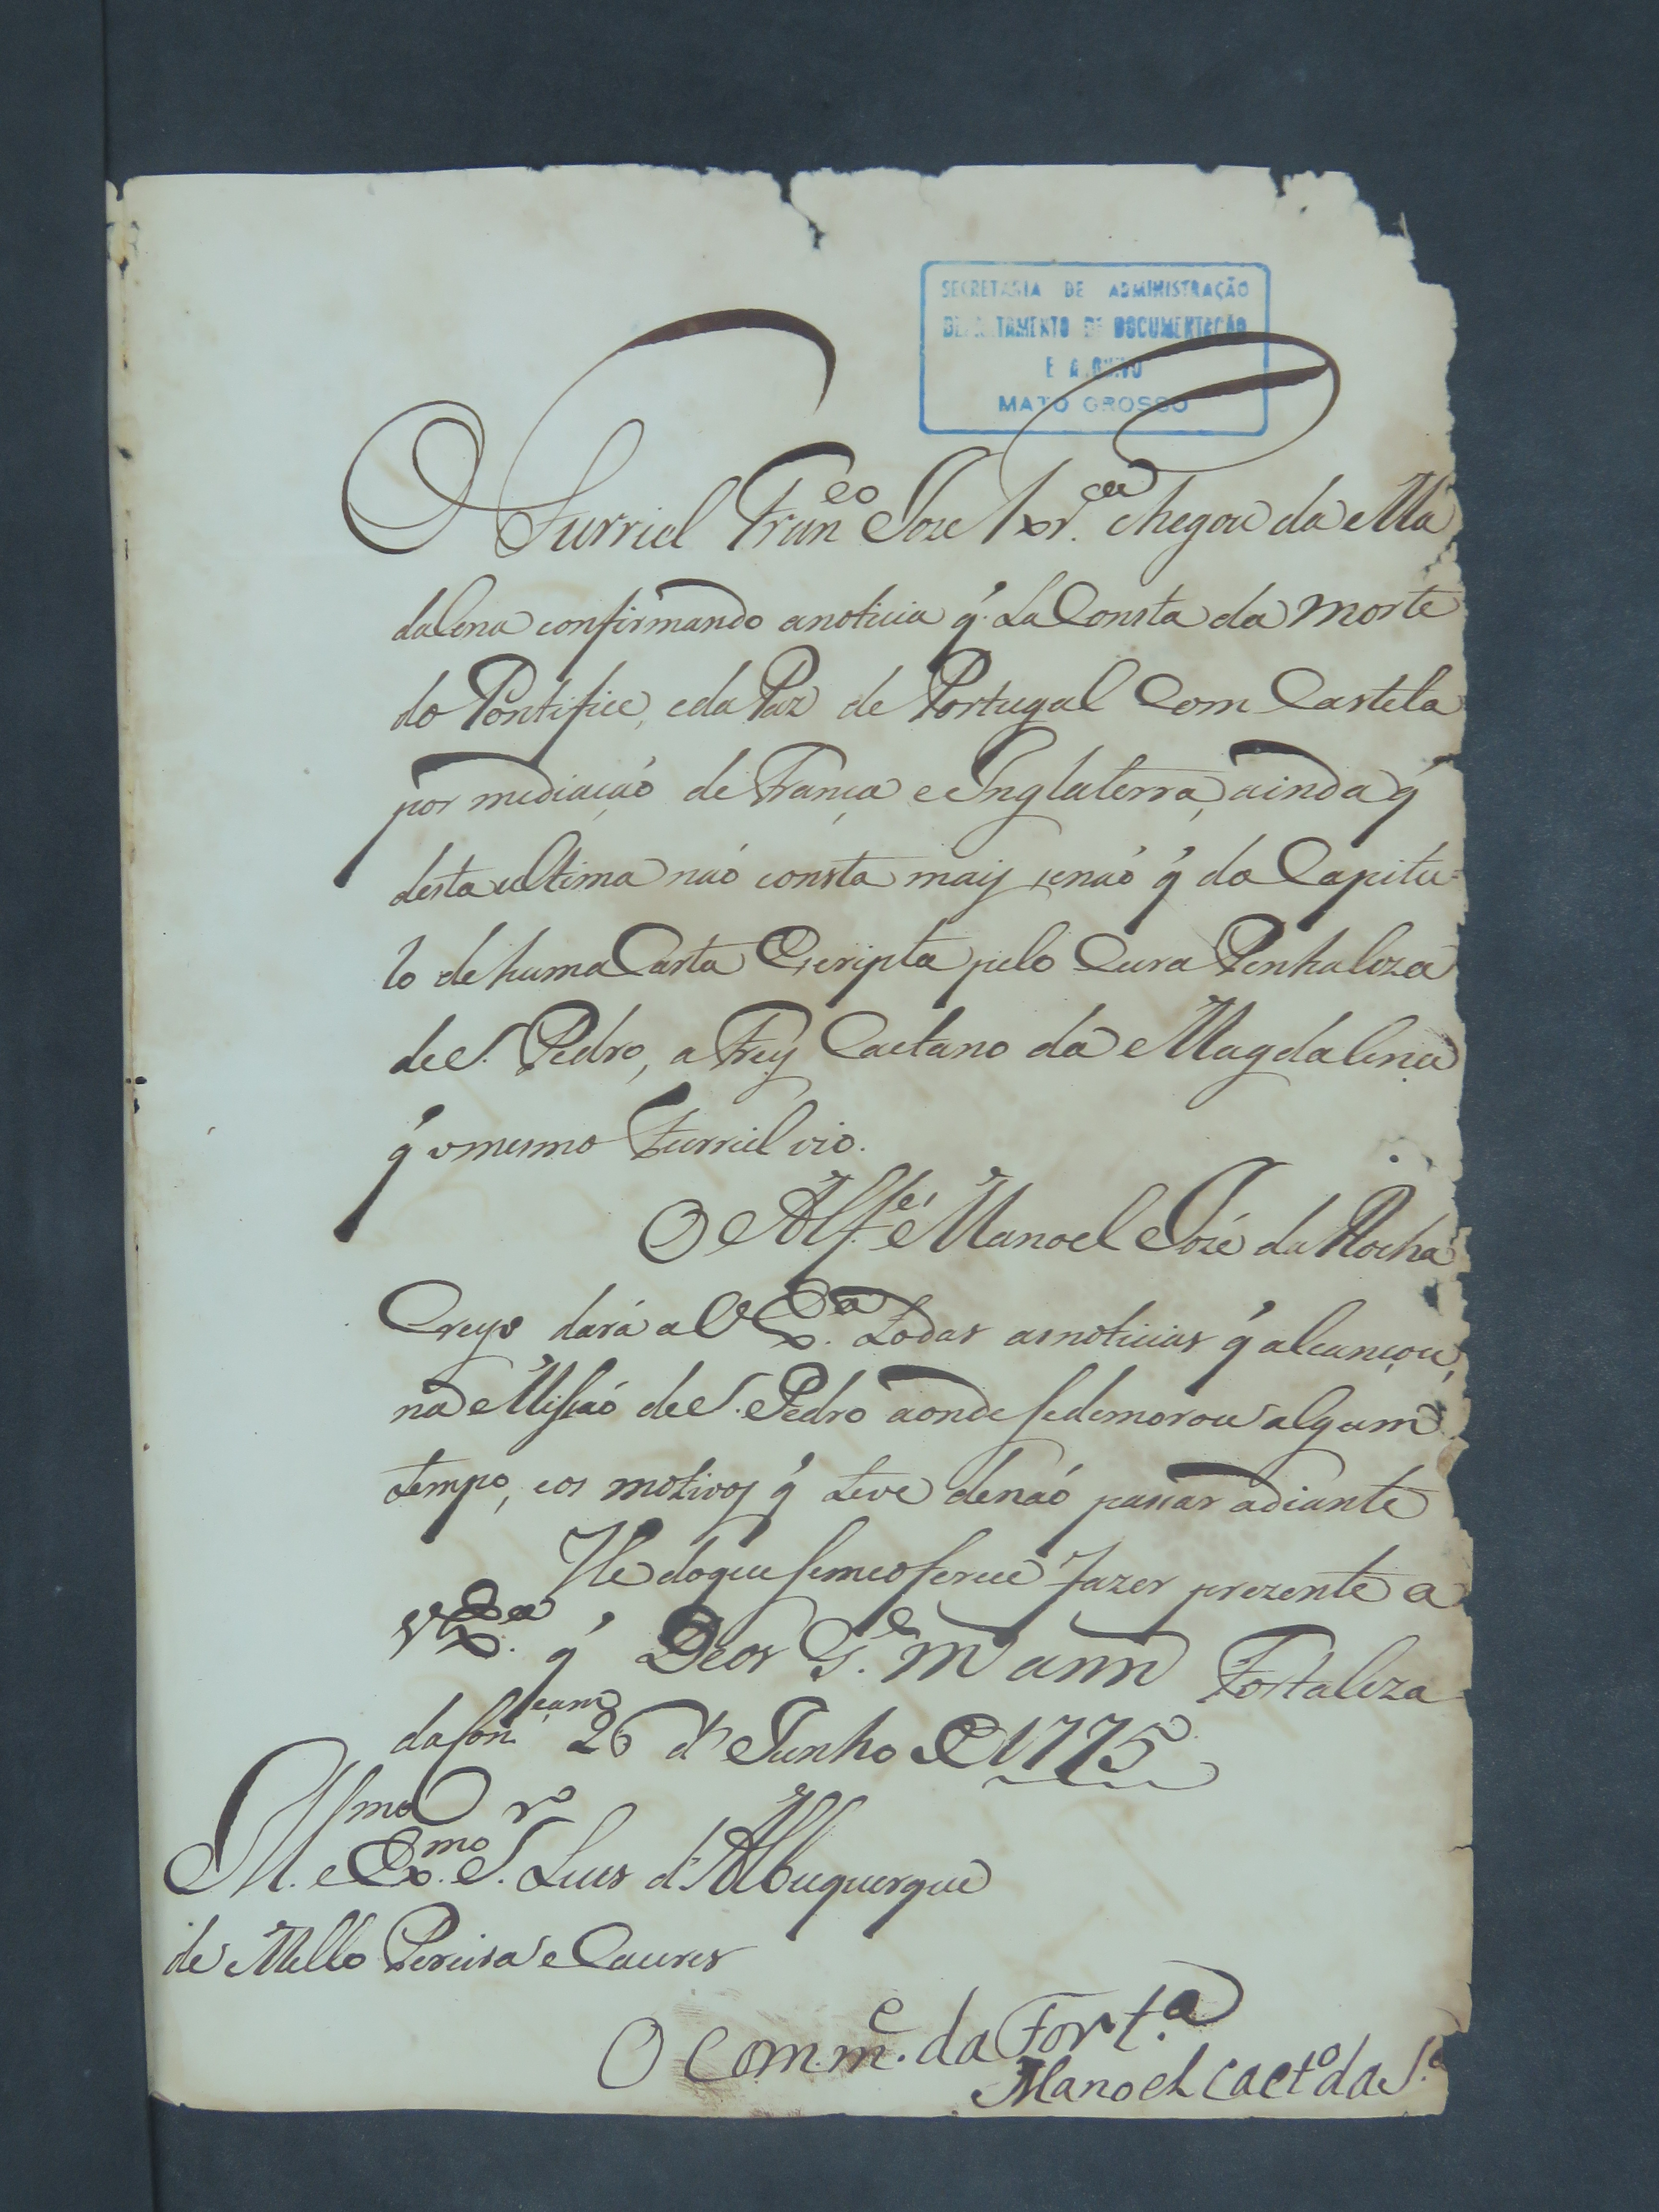 SECRETARIA DE ADMINISTRAÇÃO
DEPARTAMENTO DE DOCUMENTAÇÃO
E ARQUIVO
MATO GROSSO
O Furriel Fran.co Joze chegou da Ma
dalena confirmando a noticia q̃. La Consta da morte
do Pontifice, e da Paz de Portugal Com Castela
por mediaçaó de França e Inglaterra, ainda q̃
desta ultima naó consta mais senaó q̃ do Capitu=
lo de huma Carta Escripta pelo Cura Penhaloza
de S. Pedro, a Frey Caetano da Magdalena
q̃ o mesmo Furriel vio.
O Alf.es Manoel Jozé da Rocha
Creyo dará a V Ex.a todas as noticias q̃ alcançou,
na Missaó de S. Pedro aonde se demorou algum
tempo, e os motivos q̃ teve de naó passar adiante
He do que se me oferece fazer prezente a
V Ex.a q̃ Deos G.e m ann Fortaleza
da Con.cam 26 d' Junho de 1775
Ill.mo e Ex.mo S.r Luis d'Albuquerque
de Mello Pereira e Caures
O Com.m.e da Fort.a
Manoel Caet.o da S.a